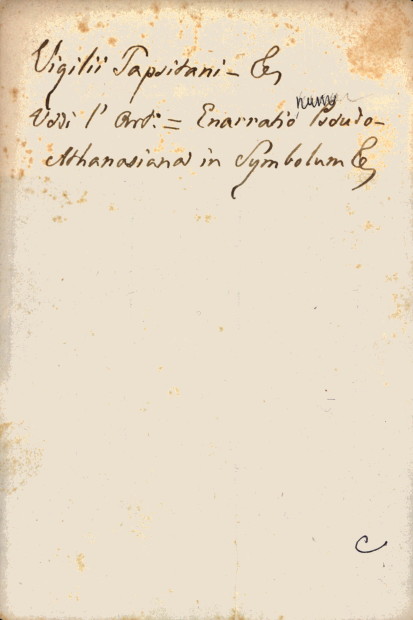 Vigilii Tapsitani - &
nunc
Vedi l' Art: = Enarratio Pseudo-
Athanasiana in Symbolum &
C